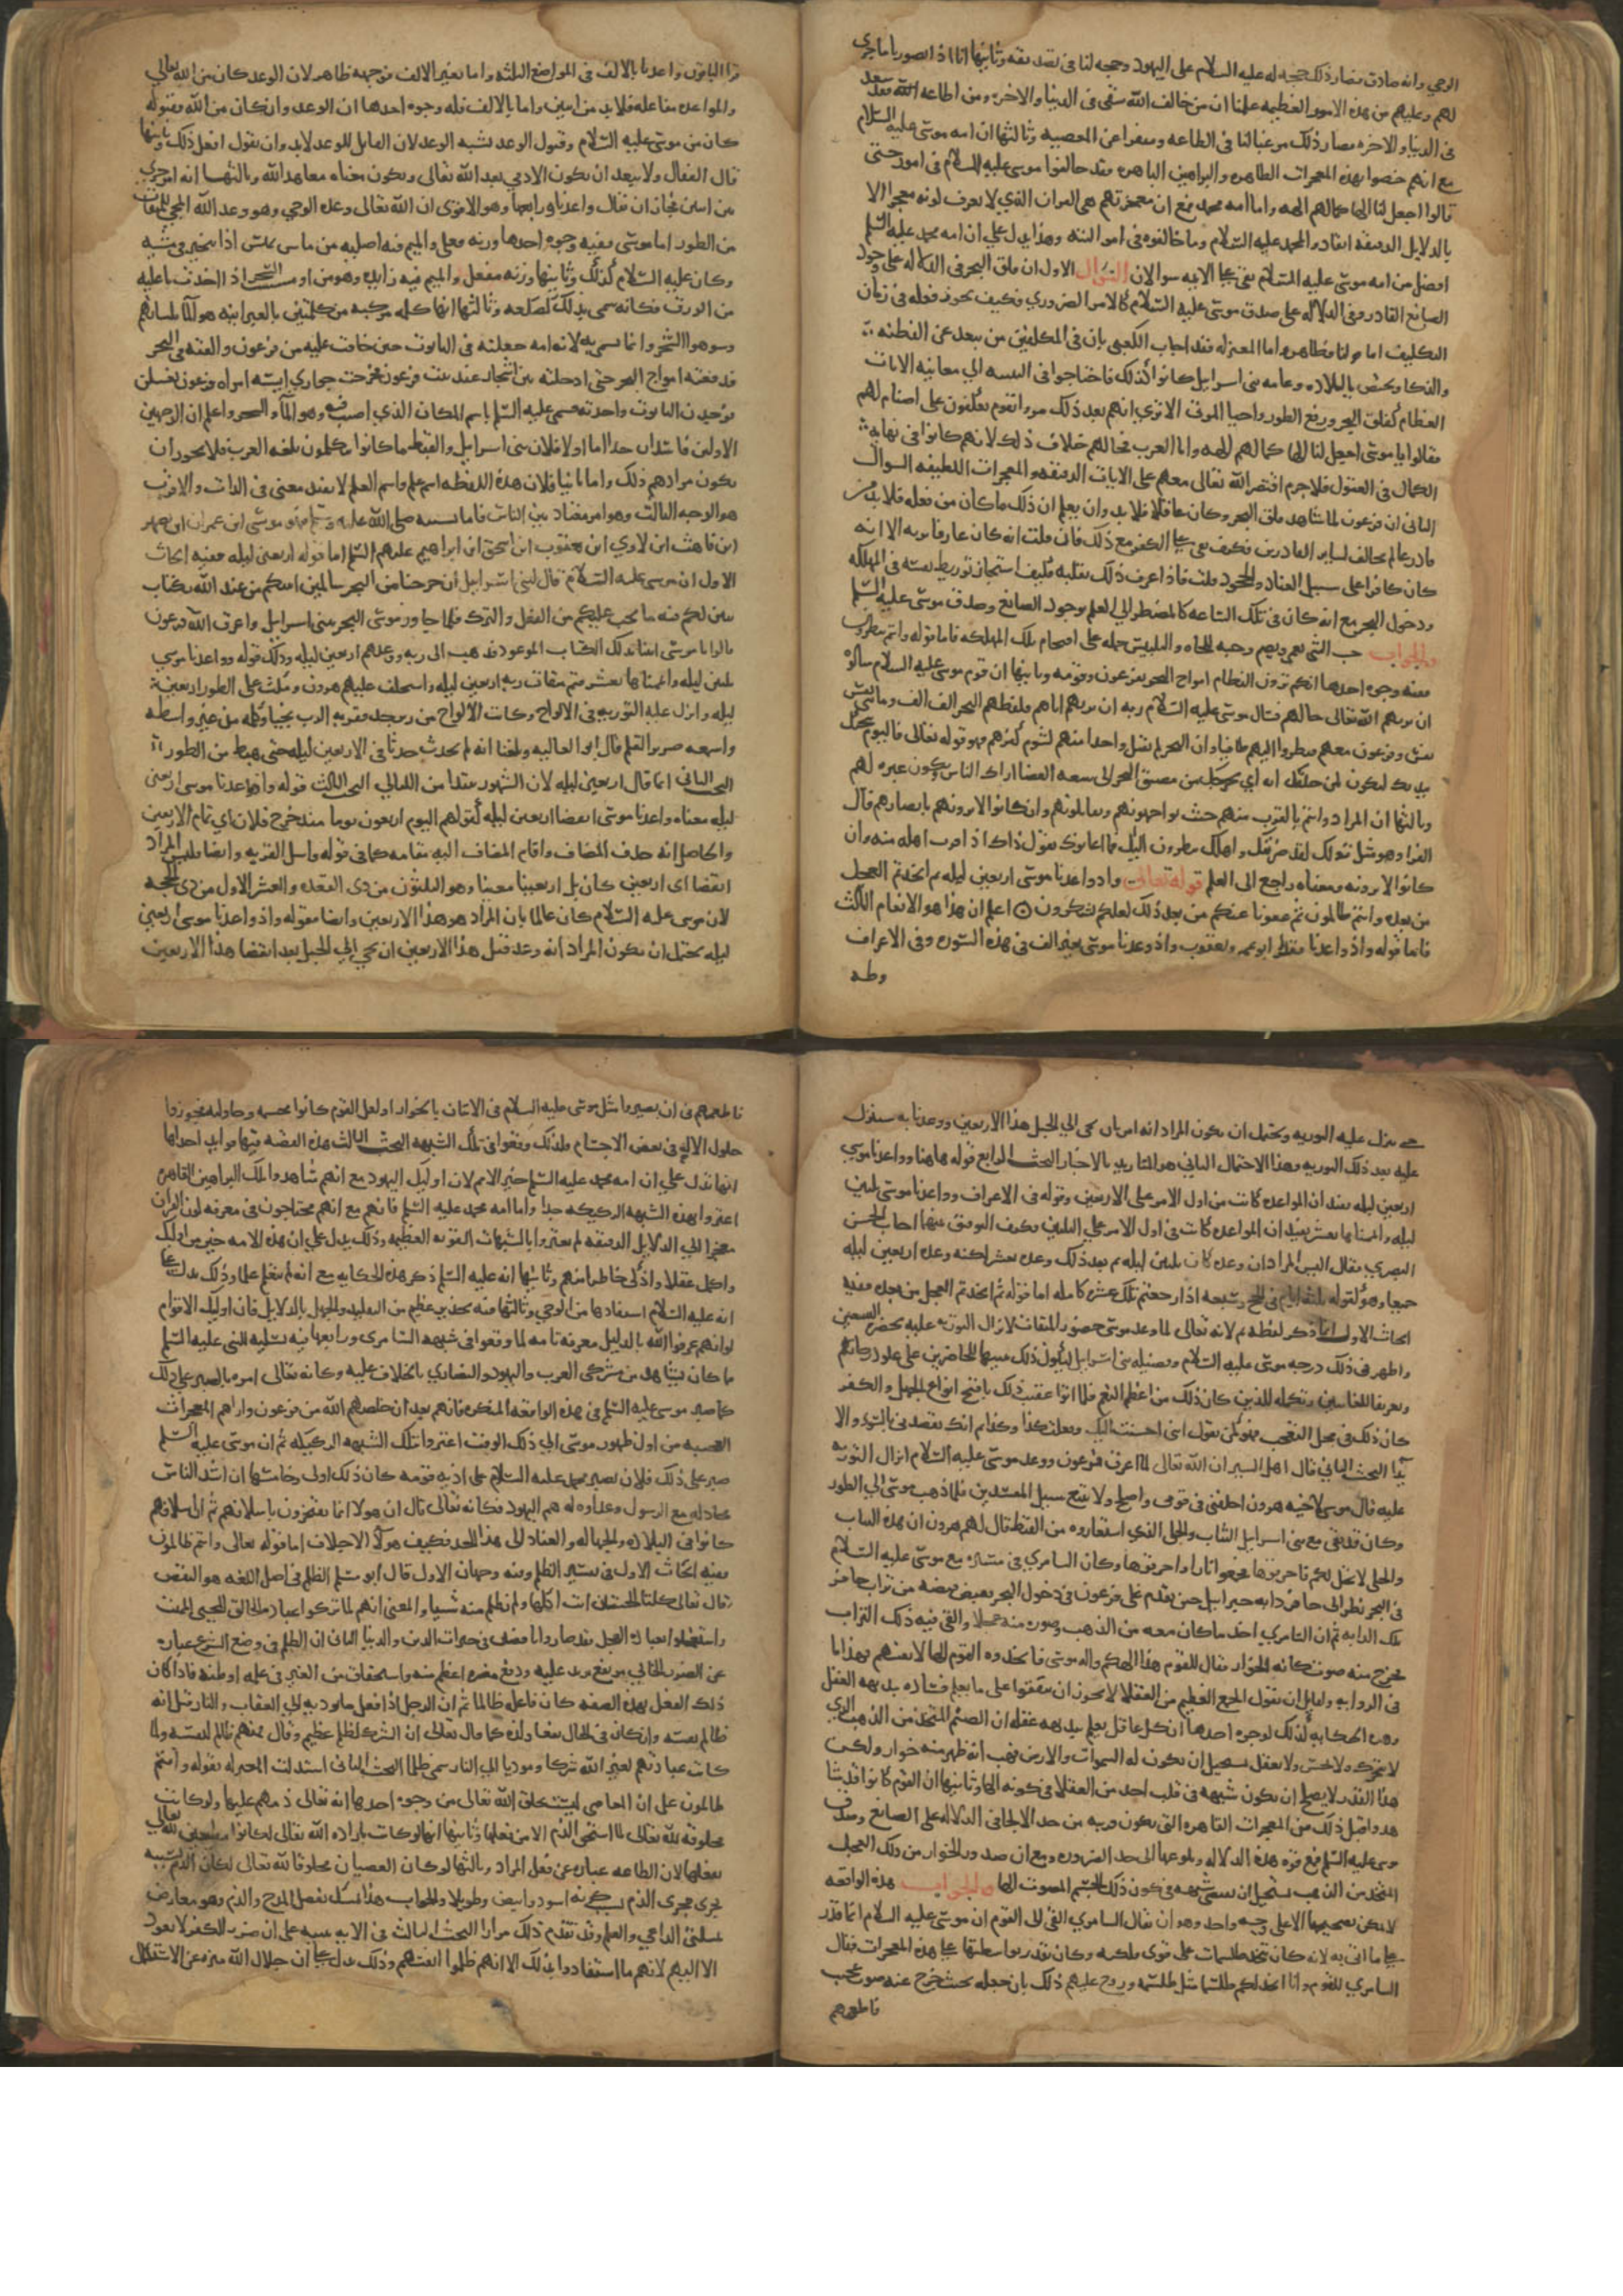 الوحي وانه صادق فصار ذلك حجه له عليه السلام على اليهود وحجه لنا في تصديقه وثانيها انا اذا تصورنا ما جرى
لهم وعليهم من هذه الامور العظيمه علمنا ان من خالف الله شقي في الدنيا والاخره ومن اطاعه فقد سعد
في الدنيا والاخره فصار ذلك مرغبا لنا في الطاعه ومنفرا عن المعصيه وثالثها ان امه موسى عليه السلام
مع انهم خصوا بهذه المعجزات الظاهره والبراهين الباهره فقد خالفوا موسى عليه السلام في امور حتى
قالوا اجعل لنا الها كما لهم الهه واما امه محمد فمع ان معجزتهم هي القران الذي لا يعرف كونه معجزا الا
بالدلايل الدقيقه انقادوا لمحمد عليه السلام وما خالفوه في امر البته وهذا يدل علي ان امه محمد عليه السلم
افضل من امه موسى عليه السلام بقي على الايه سوالان السوال الاول ان فلق البحر في الدلاله على وجود
الصانع القادر وفي الدلاله على صدق موسى عليه السلام كالامر الضروري فكيف يجوز فعله في زمان
التكليف اما قولنا فظاهر واما المعتزله فقد اجاب الكعبي بان في المكلفين من يبعد عن الفطنه
والذكا ويختص بالبلاده وعامه بنى اسرايل كانوا كذلك فاحتاجوا في التنبيه الي معاينه الايات
العظام كفلق البحر ورفع الطور واحيا الموتى الا ترى انهم بعد ذلك مروا بقوم يعكفون على اصنام لهم
فقالوا يا موسى اجعل لنا الها كما لهم الهه واما العرب فحالهم خلاف ذلك لانهم كانوا في نهايه
الكمال في العقول فلا جرم اقتصر الله تعالى معهم على الايات الدقيقه والمعجزات اللطيفه السوال
الثاني ان فرعون لما شاهد فلق البحر وكان عاقلا فلا بد وان يعلم ان ذلك ما كان من فعله فلا بد من
قادر عالم مخالف لساير القادرين فكيف بقي على الكفر مع ذلك فان قلت انه كان عارفا بربه الا انه
كان كافرا على سبيل العناد والجحود قلت فاذا عرف ذلك بقلبه فكيف استجاز توريط نفسه في المهلكه
ودخول البحر مع انه كان في تلك الساعه كالمضطر الي العلم بوجود الصانع وصدق موسى عليه السلم
والجواب حب الشي يعمي ويصم وحبه للجاه والتلبيس حمله على اقتحام تلك المهلكه فاما قوله وانتم تنظرون
ففيه وجوه احدها انكم ترون التطام امواج البحر بفرعون وقومه وثانيها ان قوم موسى عليه السلام سالوه
ان يريهم الله تعالى حالهم فسال موسى عليه السلام ربه ان يريهم اياهم فلفظهم البحر الف الف ومائتي
نفس وفرعون معهم فنظروا اليهم طافيا وان البحر لم يقبل واحدا منهم لشوم كفرهم فهو قوله تعالى فاليوم ننجيك
ببدنك لتكون لمن خلفك ايه اي نخرجك من مضيق البحر الى سعه الفضا ليراك الناس وتكون عبره لهم
وثالثها ان المراد وانتم بالقرب منهم حيث تواجهونهم وتقابلونهم وان كانوا لا يرونهم بابصارهم قال
الفرا وهو مثل قولك لقد ضربتك واهلك ينظرون اليك فما اغاثوك تقول ذاك اذا قرب اهله منه وان
كانوا لا يرونه ومعناه راجع الى العلم قوله تعالى واذ واعدنا موسى اربعين ليله ثم اتخذتم العجل
من بعده وانتم ظالمون ثم عفونا عنكم من بعد ذلك لعلكم تشكرون اعلم ان هذا هو الانعام الثالث
فاما قوله واذ واعدنا فقرا ابو عمرو ويعقوب واذ وعدنا موسى بغير الف في هذه السوره وفي الاعراف
وطه
قرا الباقون واعدنا بالالف في المواضع الثلثه واما بغير الالف فوجهه ظاهر لان الوعد كان من الله تعالى
والمواعده مفاعله فلا بد من اثنين واما بالالف فله وجوه احدها ان الوعد وان كان من الله فقبوله
كان من موسى عليه السلام وقبول الوعد يشبه الوعد لان القابل للوعد لابد وان يقول افعل ذلك وثانيها
قال القفال ولا يبعد ان يكون الادمي يعد الله تعالى ويكون معناه معاهد الله وثالثها انه امر جرى
بين اثنين فجاز ان يقال واعدنا ورابعها وهو الاقوى ان الله تعالى وعده الوحي وهو وعد الله المجي للميقات
من الطور اما موسى ففيه وجوه احدها وزنه فعلى والميم فيه اصليه من ماس يميس اذا تبختر في مشيه
وكان عليه السلام كذلك وثانيها وزنه مفعل والميم فيه زايده وهو من اوسيت الشجر اذا اخذت ما عليه
من الورق فكانه سمي بذلك لصلعه وثالثها انها كلمه مركبه من كلمتين بالعبرانيه مو هو الماء بلسانهم
وسو هو الشجر وانما سمي به لانه امه جعلته في التابوت حين خافت عليه من فرعون والقته في البحر
فدفعته امواج البحر حتى ادخلته بين اشجار عند بيت فرعون فخرجت جواري اسيه امراه فرعون يغسلن
فوجدن التابوت واخذنه فسمي عليه السلم باسم المكان الذي اصيب فيه وهو الماء والشجر واعلم ان الوجهين
الاولين فاسدان جدا اما اولا فلان بنى اسرايل والقبط ما كانوا يتكلمون بلغه العرب فلا يجوز ان
يكون مرادهم ذلك واما ثانيا فلان هذه اللفظه اسم علم واسم العلم لا يفيد معنى في الذات والاقرب
هو الوجه الثالث وهو امر معتاد بين الناس فاما نسبه صلى الله عليه وسلم فهو موسى ابن عمران ابن يصهر
ابن قاهث ابن لاوي ابن يعقوب ابن اسحق ابن ابراهيم عليهم السلم اما قوله اربعين ليله ففيه ابحاث
الاول ان موسى عليه السلام قال لبني اسرايل ان خرجنا من البحر سالمين اتيتكم من عند الله بكتاب
يبين لكم فيه ما يجب عليكم من الفعل والترك فلما جاوز موسى البحر ببنى اسرايل واغرق الله فرعون
قالوا يا موسى ايتنا بذلك الكتاب الموعود فذهب الى ربه ووعدهم اربعين ليله وذلك قوله وواعدنا موسي
ثلثين ليله واتممناها بعشر فتم ميقات ربه اربعين ليله واستخلف عليهم هرون ومكث على الطور اربعين
ليله وانزل عليه التوريه في الالواح وكانت الالواح من زبرجد فقربه الرب نجيا وكلمه من غير واسطه
واسمعه صرير القلم قال ابو العاليه وبلغنا انه لم يحدث حدثا في الاربعين ليله حتى هبط من الطور
البحث الثاني انما قال اربعين ليله لان الشهور تبتدا من الليالي البحث الثالث قوله واذ واعدنا موسى اربعين
ليله معناه واعدنا موسى انقضا اربعين ليله كقولهم اليوم اربعون يوما منذ خرج فلان اي تمام الاربعين
والحاصل انه حذف المضاف واقام المضاف اليه مقامه كما في قوله واسل القريه وايضا فليس المراد
انقضا اى اربعين كان بل اربعينا معينا وهو الثلثون من ذى القعده والعشر الاول من ذى الحجه
لان موسى عليه السلام كان عالما بان المراد هو هذا الاربعين وايضا فقوله واذ واعدنا موسى اربعين
ليله يحتمل ان يكون المراد انه وعد قبل هذا الاربعين ان يجي الي الجبل بعد انقضا هذا الاربعين
حتى ينزل عليه التوريه ويحتمل ان يكون المراد انه امر بان يجى الي الجبل هذا الاربعين ووعدنا به سننزل
عليه بعد ذلك التوريه وهذا الاحتمال الثاني هو المتايد بالاخبار البحث الرابع قوله هاهنا وواعدنا موسي
اربعين ليله يفيد ان المواعده كانت من اول الامر على الاربعين وقوله في الاعراف وواعدنا موسى ثلثين
ليله واتممناها بعشر يفيد ان المواعده كانت في اول الامر علي الثلثين فكيف التوفيق بينهما اجاب الحسن
البصري فقال ليس المراد ان وعده كان ثلثين ليله ثم بعد ذلك وعده بعشر لكنه وعده اربعين ليله
جميعا وهو كقوله ثلثه ايام في الحج وسبعه اذا رجعتم تلك عشره كامله اما قوله ثم اتخذتم العجل من بعده ففيه
ابحاث الاول انما ذكر لفظه ثم لانه تعالى لما وعد موسى حضور الميقات لانزال التوريه عليه بحضره السبعين
واظهر في ذلك درجه موسى عليه السلام وفضيله بنى اسرايل ليكون ذلك تنبيها للحاضرين على علو درجاتهم
وتعريفا للغايبين وتكمله للدين كان ذلك من اعظم النعم فلما اتوا عقيب ذلك باقبح انواع الجهل والكفر
كان ذلك في محل التعجب فهو كمن يقول انني احسنت اليك وفعلت كذا وكذا ثم انك تقصدني بالسوء والا
يذا البحث الثاني قال اهل السير ان الله تعالى لما اغرق فرعون ووعد موسى عليه السلام انزال التوريه
عليه قال موسى لاخيه هرون اخلفني في قومى واصلح ولا تتبع سبيل المفسدين فلما ذهب موسى الي الطور
وكان قد بقي مع بنى اسرايل الثياب والحلى الذي استعاروه من القبط قال لهم هرون ان هذه الثياب
والحلى لا تحل لكم فاحرقوها فجمعوا نارا واحرقوها وكان السامري في مسيره مع موسى عليه السلام
في البحر نظر الى حافر دابه جبرايل حين تقدم على فرعون في دخول البحر فقبض قبضه من تراب حافر
تلك الدابه ثم ان السامري اخذ ما كان معه من الذهب وصور منه عجلا والقى فيه ذلك التراب
فخرج منه صوت كانه الخوار فقال للقوم هذا الهكم واله موسى فاتخذوه القوم الها لانفسهم فهذا ما
في الروايه ولقايل ان يقول الجمع العظيم من العقلا لا يجوز ان يتفقوا على ما يعلم فساده ببديهه العقل
وهذه الحكايه كذلك لوجوه احدها ان كل عاقل يعلم ببديهه عقله ان الصنم المتخذ من الذهب الذي
لا يتحرك ولا يحس ولا يعقل يستحيل ان يكون اله السموات والارض فهب انه ظهر منه خوار ولكن
هذا القدر لا يصلح ان يكون شبهه في قلب احد من العقلا في كونه الها وثانيها ان القوم كانوا قد شا
هدوا قبل ذلك من المعجزات القاهره التي تكون قريبه من حد الالجا في الدلاله على الصانع وصدق
موسى عليه السلم فمع قوه هذه الدلاله وبلوغها الى حد الضروره ومع ان صدور الخوار من ذلك العجل
المتخذ من الذهب يستحيل ان يقتضي شبهه في كون ذلك الجسم المصوت الها والجواب هذه الواقعه
لا يمكن تصحيحها الا على وجه واحد وهو ان يقال السامري القى الى القوم ان موسى عليه السلام انما قدر
على ما اتى به لانه كان يتخذ طلسمات على قوى فلكيه وكان يقدر بواسطتها على هذه المعجزات فقال
السامري للقوم وانا اتخذ لكم طلسما مثل طلسمه وروح عليهم ذلك بان جعله بحيث خرج عنه صوت عجيب
فاطمعهم
فاطمعهم في ان يصيروا مثل موسى عليه السلام في الاتيان بالخوارق او لعل القوم كانوا مجسمه وحلوليه فجوزوا
حلول الاله في بعض الاجسام فلذلك وقعوا في تلك الشبهه البحث الثالث هذه القصه فيها فوايد احداها
انها تدل علي ان امه محمد عليه السلم خير الامم لان اوليك اليهود مع انهم شاهدوا تلك البراهين القاهره
اغتروا بهذه الشبهه الركيكه جدا واما امه محمد عليه السلم فانهم مع انهم محتاجون في معرفه كون القران
معجزا الي الدلايل الدقيقه لم يغتروا بالشبهات القويه العظيمه وذلك يدل علي ان هذه الامه خير من اوليك
واكمل عقلا واذكى خاطرا منهم وثانيها انه عليه السلم ذكر هذه الحكايه مع انه لم يتعلم علما وذلك يدل على
انه عليه السلام استفادها من الوحي وثالثها فيه تحذير عظيم من التقليد والجهل بالدلايل فان اوليك الاقوام
لو انهم عرفوا الله بالدليل معرفه تامه لما وقعوا في شبهه السامرى ورابعها فيه تسليه النبي عليه السلم
ما كان يشاهد من مشركى العرب واليهود والنصاري بالخلاف عليه وكانه تعالى امره بالصبر على ذلك
كما صبر موسى عليه السلم في هذه الواقعه المنكره فانهم بعد ان خلصهم الله من فرعون واراهم المعجزات
العجيبه من اول ظهور موسى الي ذلك الوقت اغتروا بتلك الشبهه الركيكه ثم ان موسى عليه السلم
صبر على ذلك فلان يصبر محمد عليه السلام على اذيه قومه كان ذلك اولى وخامسها ان اشد الناس
مجادله مع الرسول وعداوه له هم اليهود فكانه تعالى قال ان هولا انما يفتخرون باسلافهم ثم ان اسلافهم
كانوا في البلاده والجهاله والعناد الى هذا الحد فكيف هولاء الاخلاف اما قوله تعالى وانتم ظالمون
ففيه ابحاث الاول في تفسير الظلم وفيه وجهان الاول قال ابو مسلم الظلم في اصل اللغه هو النقص
قال تعالى كلتا الجنتين اتت اكلها ولم تظلم منه شيا والمعنى انهم لما تركوا عباده الخالق المحيى المميت
واشتغلوا بعباده العجل فقد صاروا ناقصين في خيرات الدين والدنيا الثاني ان الظلم في وضع الشرع عباره
عن الضرر الخالي من نفع يزيد عليه ودفع مضره اعظم منه واستحقاق من الغير في علمه او ظنه فاذا كان
ذلك الفعل بهذه الصفه كان فاعله ظالما ثم ان الرجل اذا فعل ما يوديه الي العقاب والنار قيل انه
ظالم نفسه وان كان في الحال نفعا ولذه كما قال تعالى ان الشرك لظلم عظيم وقال فمنهم ظالم لنفسه ولما
كانت عبادتهم لغير الله شركا وموديا الى النار سمى ظلما البحث الثاني استدلت المعتزله بقوله وانتم
ظالمون على ان المعاصي ليست بخلق الله تعالى من وجوه احدها انه تعالى ذمهم عليها ولو كانت
مخلوقه لله تعالى لما استحق الذم الا من فعلها وثانيها انها لو كانت باراده الله تعالى لكانوا مطيعين لله تعالي
بفعلها لان الطاعه عباره عن فعل المراد وثالثها لو كان العصيان مخلوقا لله تعالى لكان الذم بسببه
يجرى مجرى الذم بسبب كونه اسود وابيض وطويلا والجواب هذا تمسك بفعل المدح والذم وهو معارض
بمسلتى الداعي والعلم وقد تقدم ذلك مرارا البحث الثالث في الايه تنبيه على ان ضرر الكفر لا يعود
الا اليهم لانهم ما استفادوا بذلك الا انهم ظلموا انفسهم وذلك يدل على ان جلال الله منزه عن الاستكمال